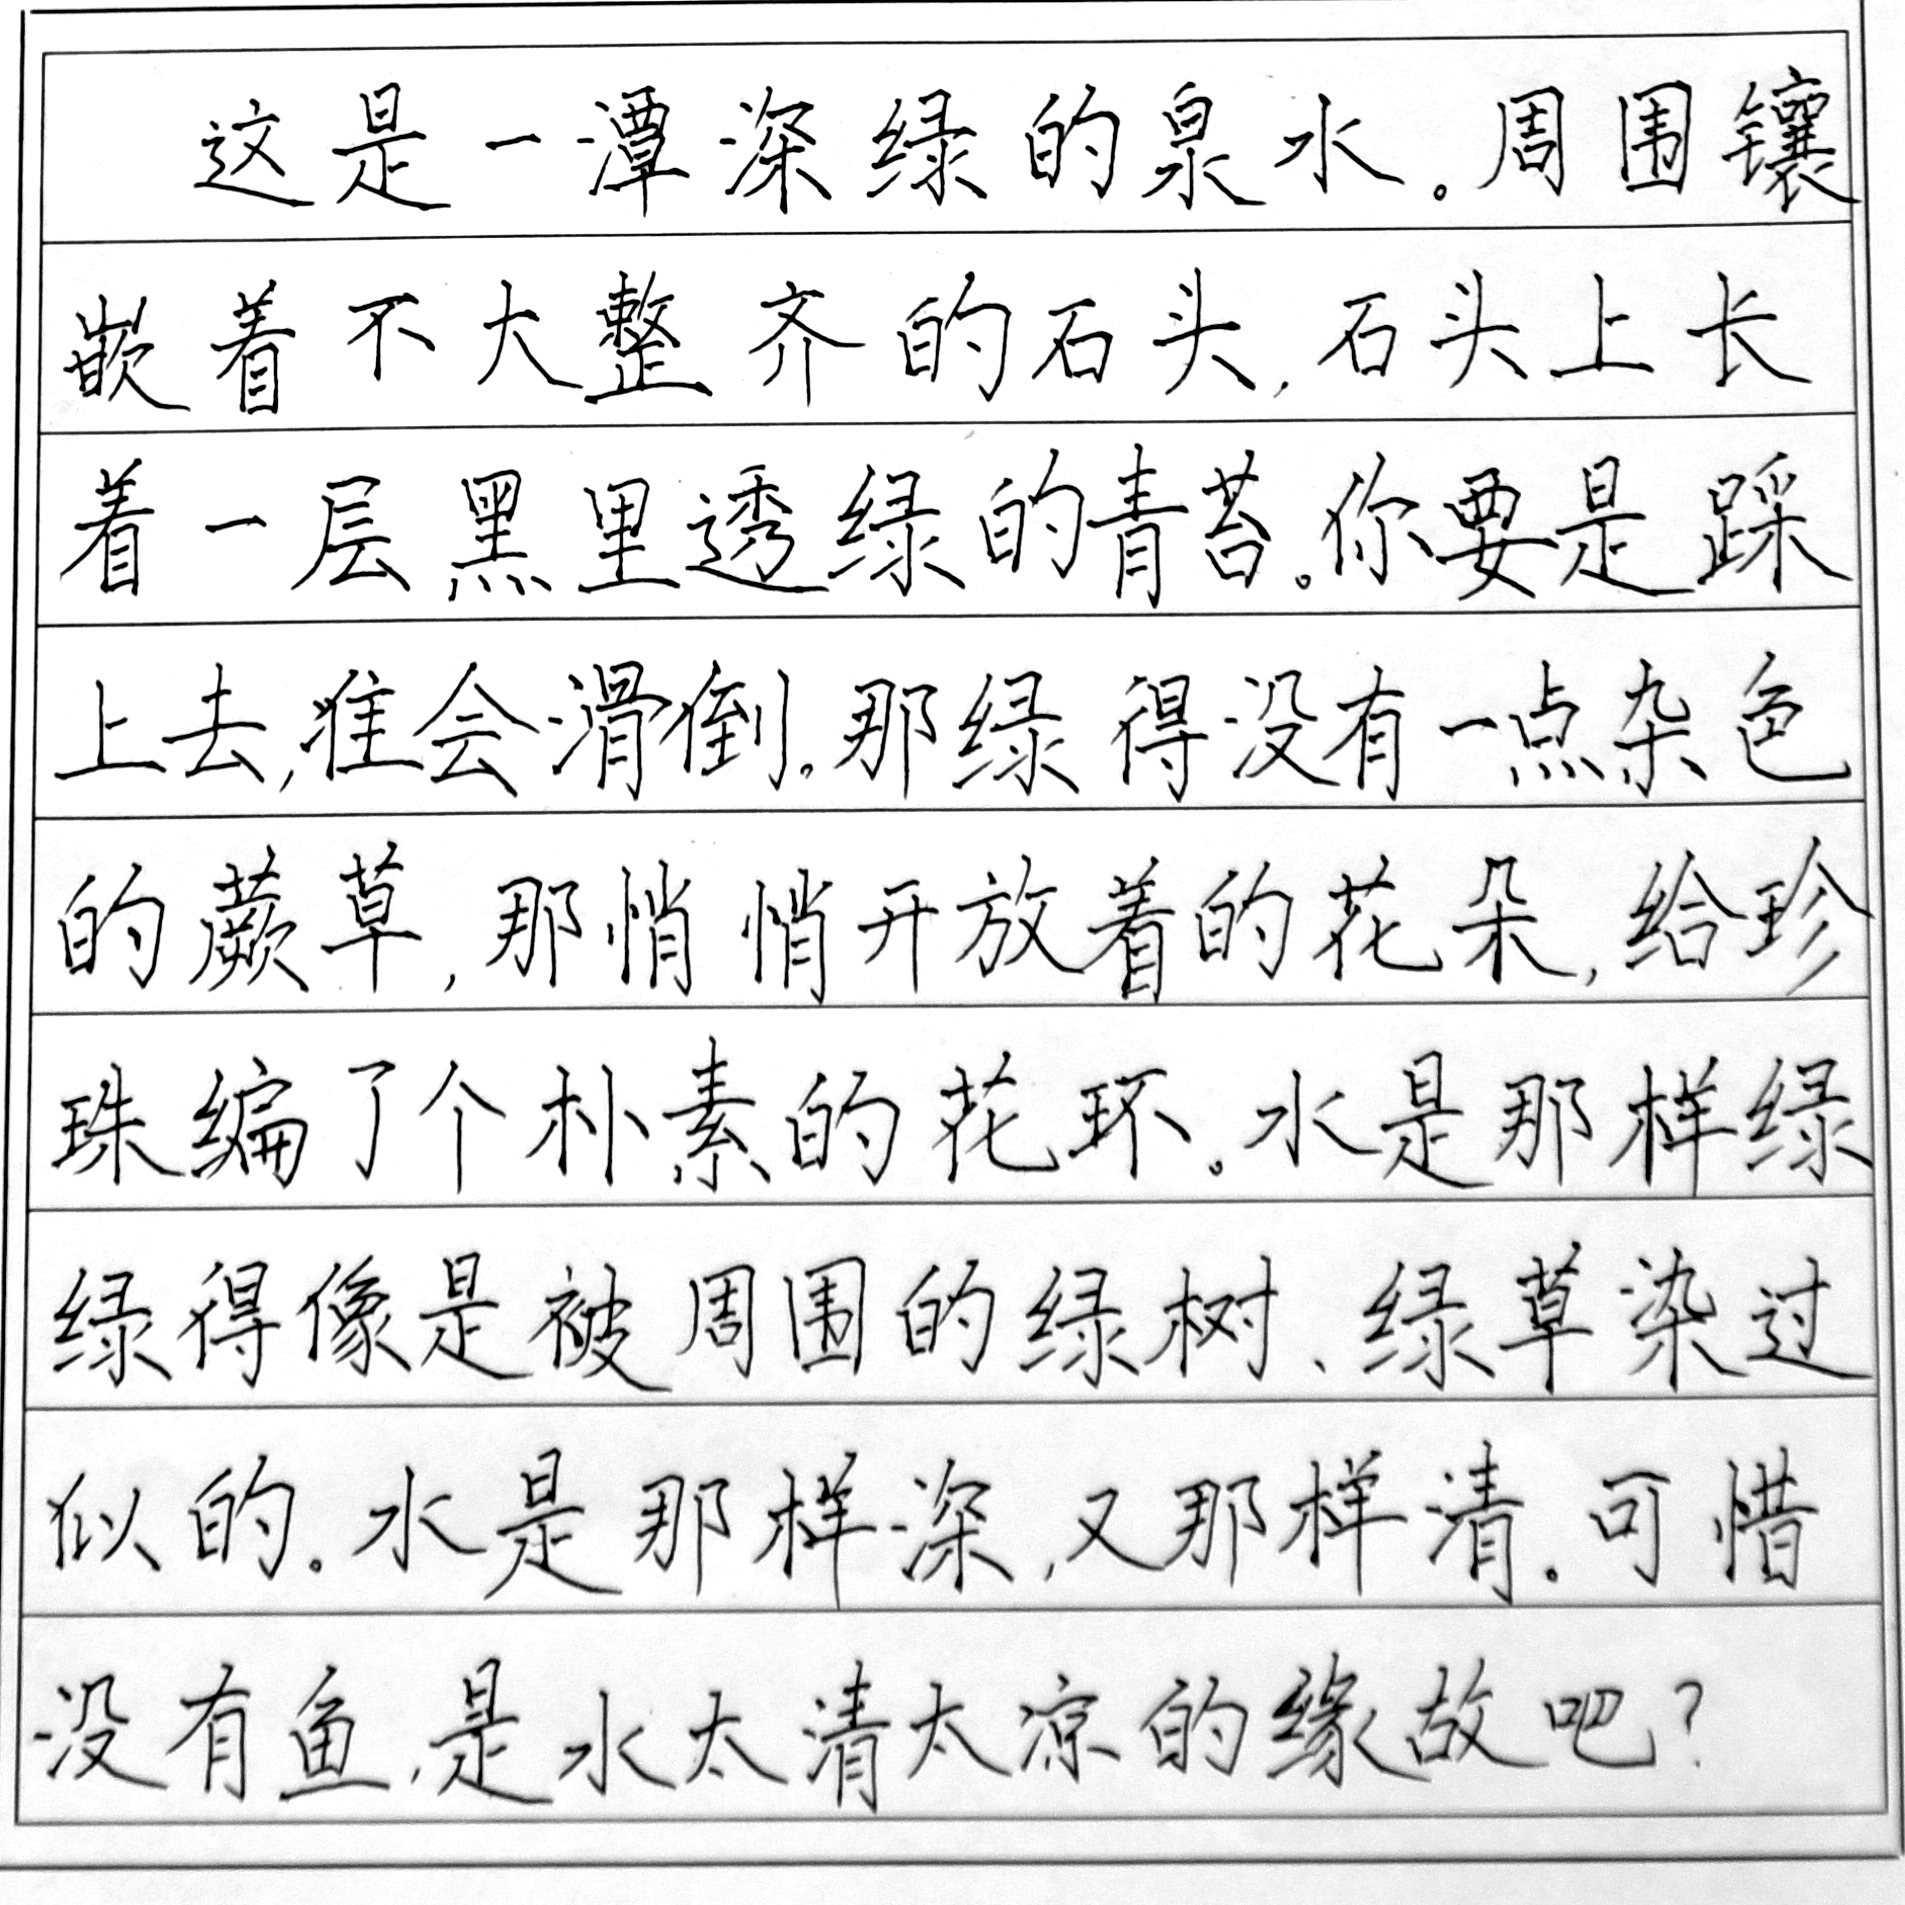 这是一潭深绿的泉水。周围镶
嵌着不大整齐的石头,石头上长
着一层黑里透绿的青苔。你要是踩
上去,准会滑倒。那绿得没有一点杂色
的蕨草,那悄悄开放着的花朵,给珍
珠编了个朴素的花环。水是那样绿
绿得像是被周围的绿树、绿草染过
似的。水是那样深,又那样清。可惜
没有鱼,是水太清太凉的缘故吧?